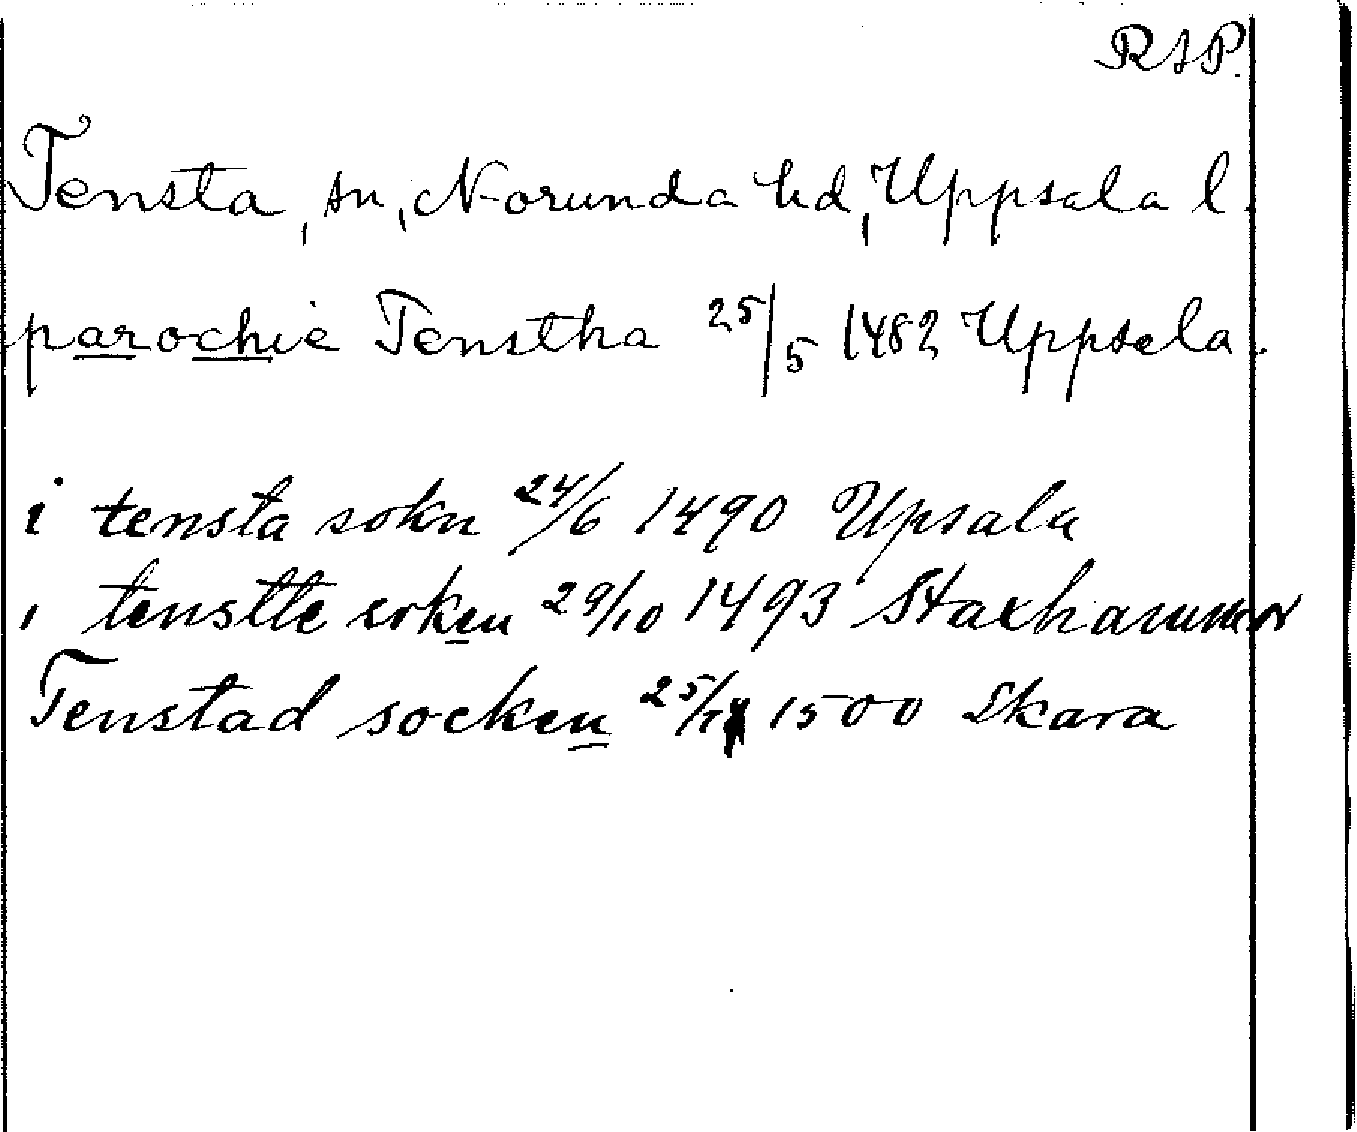 RAP.
Tensta, sn, Norunda hd, Uppsala l.
parochie Tenstha 25/5 1482 Uppsala.
i tensta sokn 24/6 1490 Upsala
i tenstte soken 29/10 1493 Staxhammar
Tenstad socken 1500 Skara